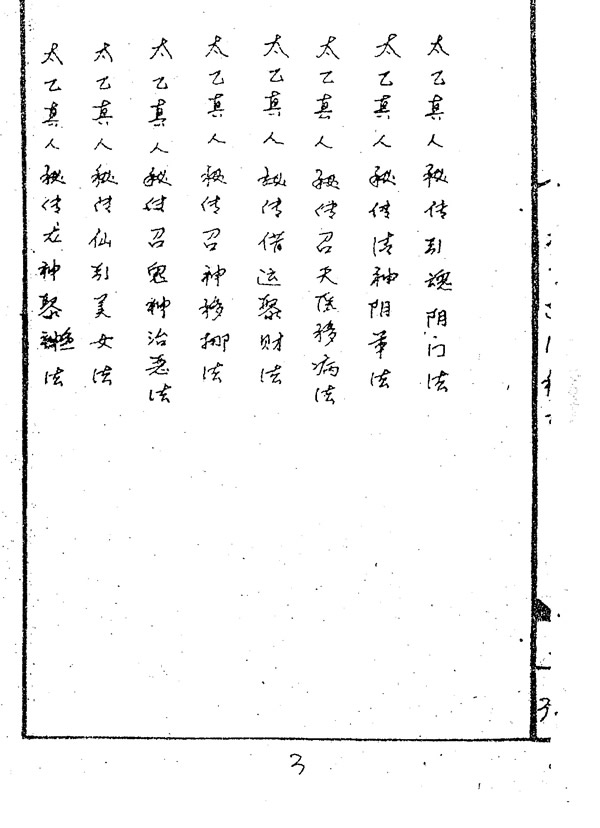 太乙真人秘传引魂阴门法
太乙真人秘传请神阴笔法
太乙真人秘传召天医移病法
太乙真人秘传借运聚财法
太乙真人秘传召神移挪法
太乙真人秘传召鬼神治恶法
太乙真人秘传仙引美女法
太乙真人秘传龙神聚法
3